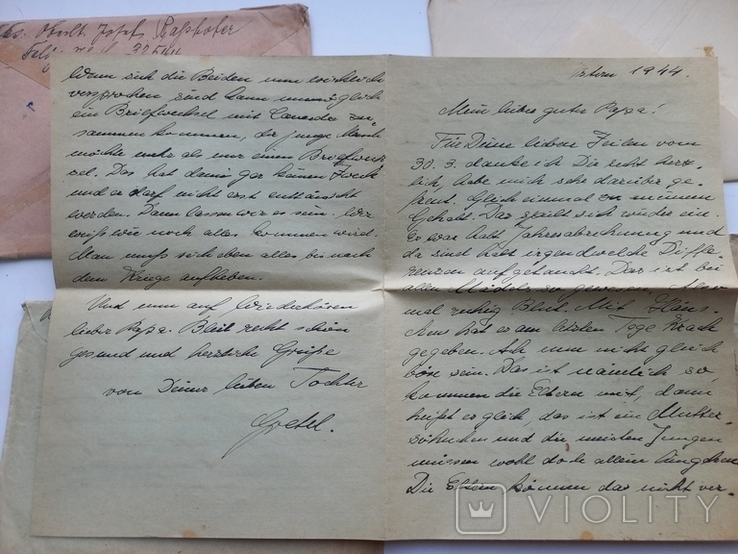 Obstlt. Josef
32544
Wenn sich die Beiden nun wirklich
versprochen sind kann unmöglich
ein Briefwechsel mit zu-
sammen kommen, der junge Mann
möchte mehr als nur einen Briefwech-
sel. Das hat dann gar keinen Zweck
und er darf nicht erst enttäuscht
werden. Dann lassen wir es sein. Wer
weiß wie noch alles kommen wird.
Man muß sich eben alles bis nach
dem Kriege aufheben.
Und nun auf Wiederhören
lieber Papa. Bleib recht schön
gesund und herzliche Grüße
von Deiner lieben Tochter
Gretel.
1944.
Mein lieber guter Papa!
Für Deine lieben Zeilen vom
30. 3. danke ich Dir recht herz-
lich, habe mich sehr darüber ge-
freut. Gleich einmal zu meinem
Gehalt. Das spielt sich wieder ein.
Es war halt Jahresabrechnung und
da sind halt irgendwelche Diffe-
renzen aufgetaucht. Das ist bei
allen so gewesen. Also
mal ruhig Blut. Mit Hans
hat es am letzten Tage Krach
gegeben. Ach nun nicht gleich
böse sein. Das ist nämlich so,
kommen die Eltern mit, dann
heißt es gleich, das ist ein Mutter-
söhnchen und die meisten Jungen
müssen wohl doch allein
Die Eltern können das nicht ver-
VIOLITY